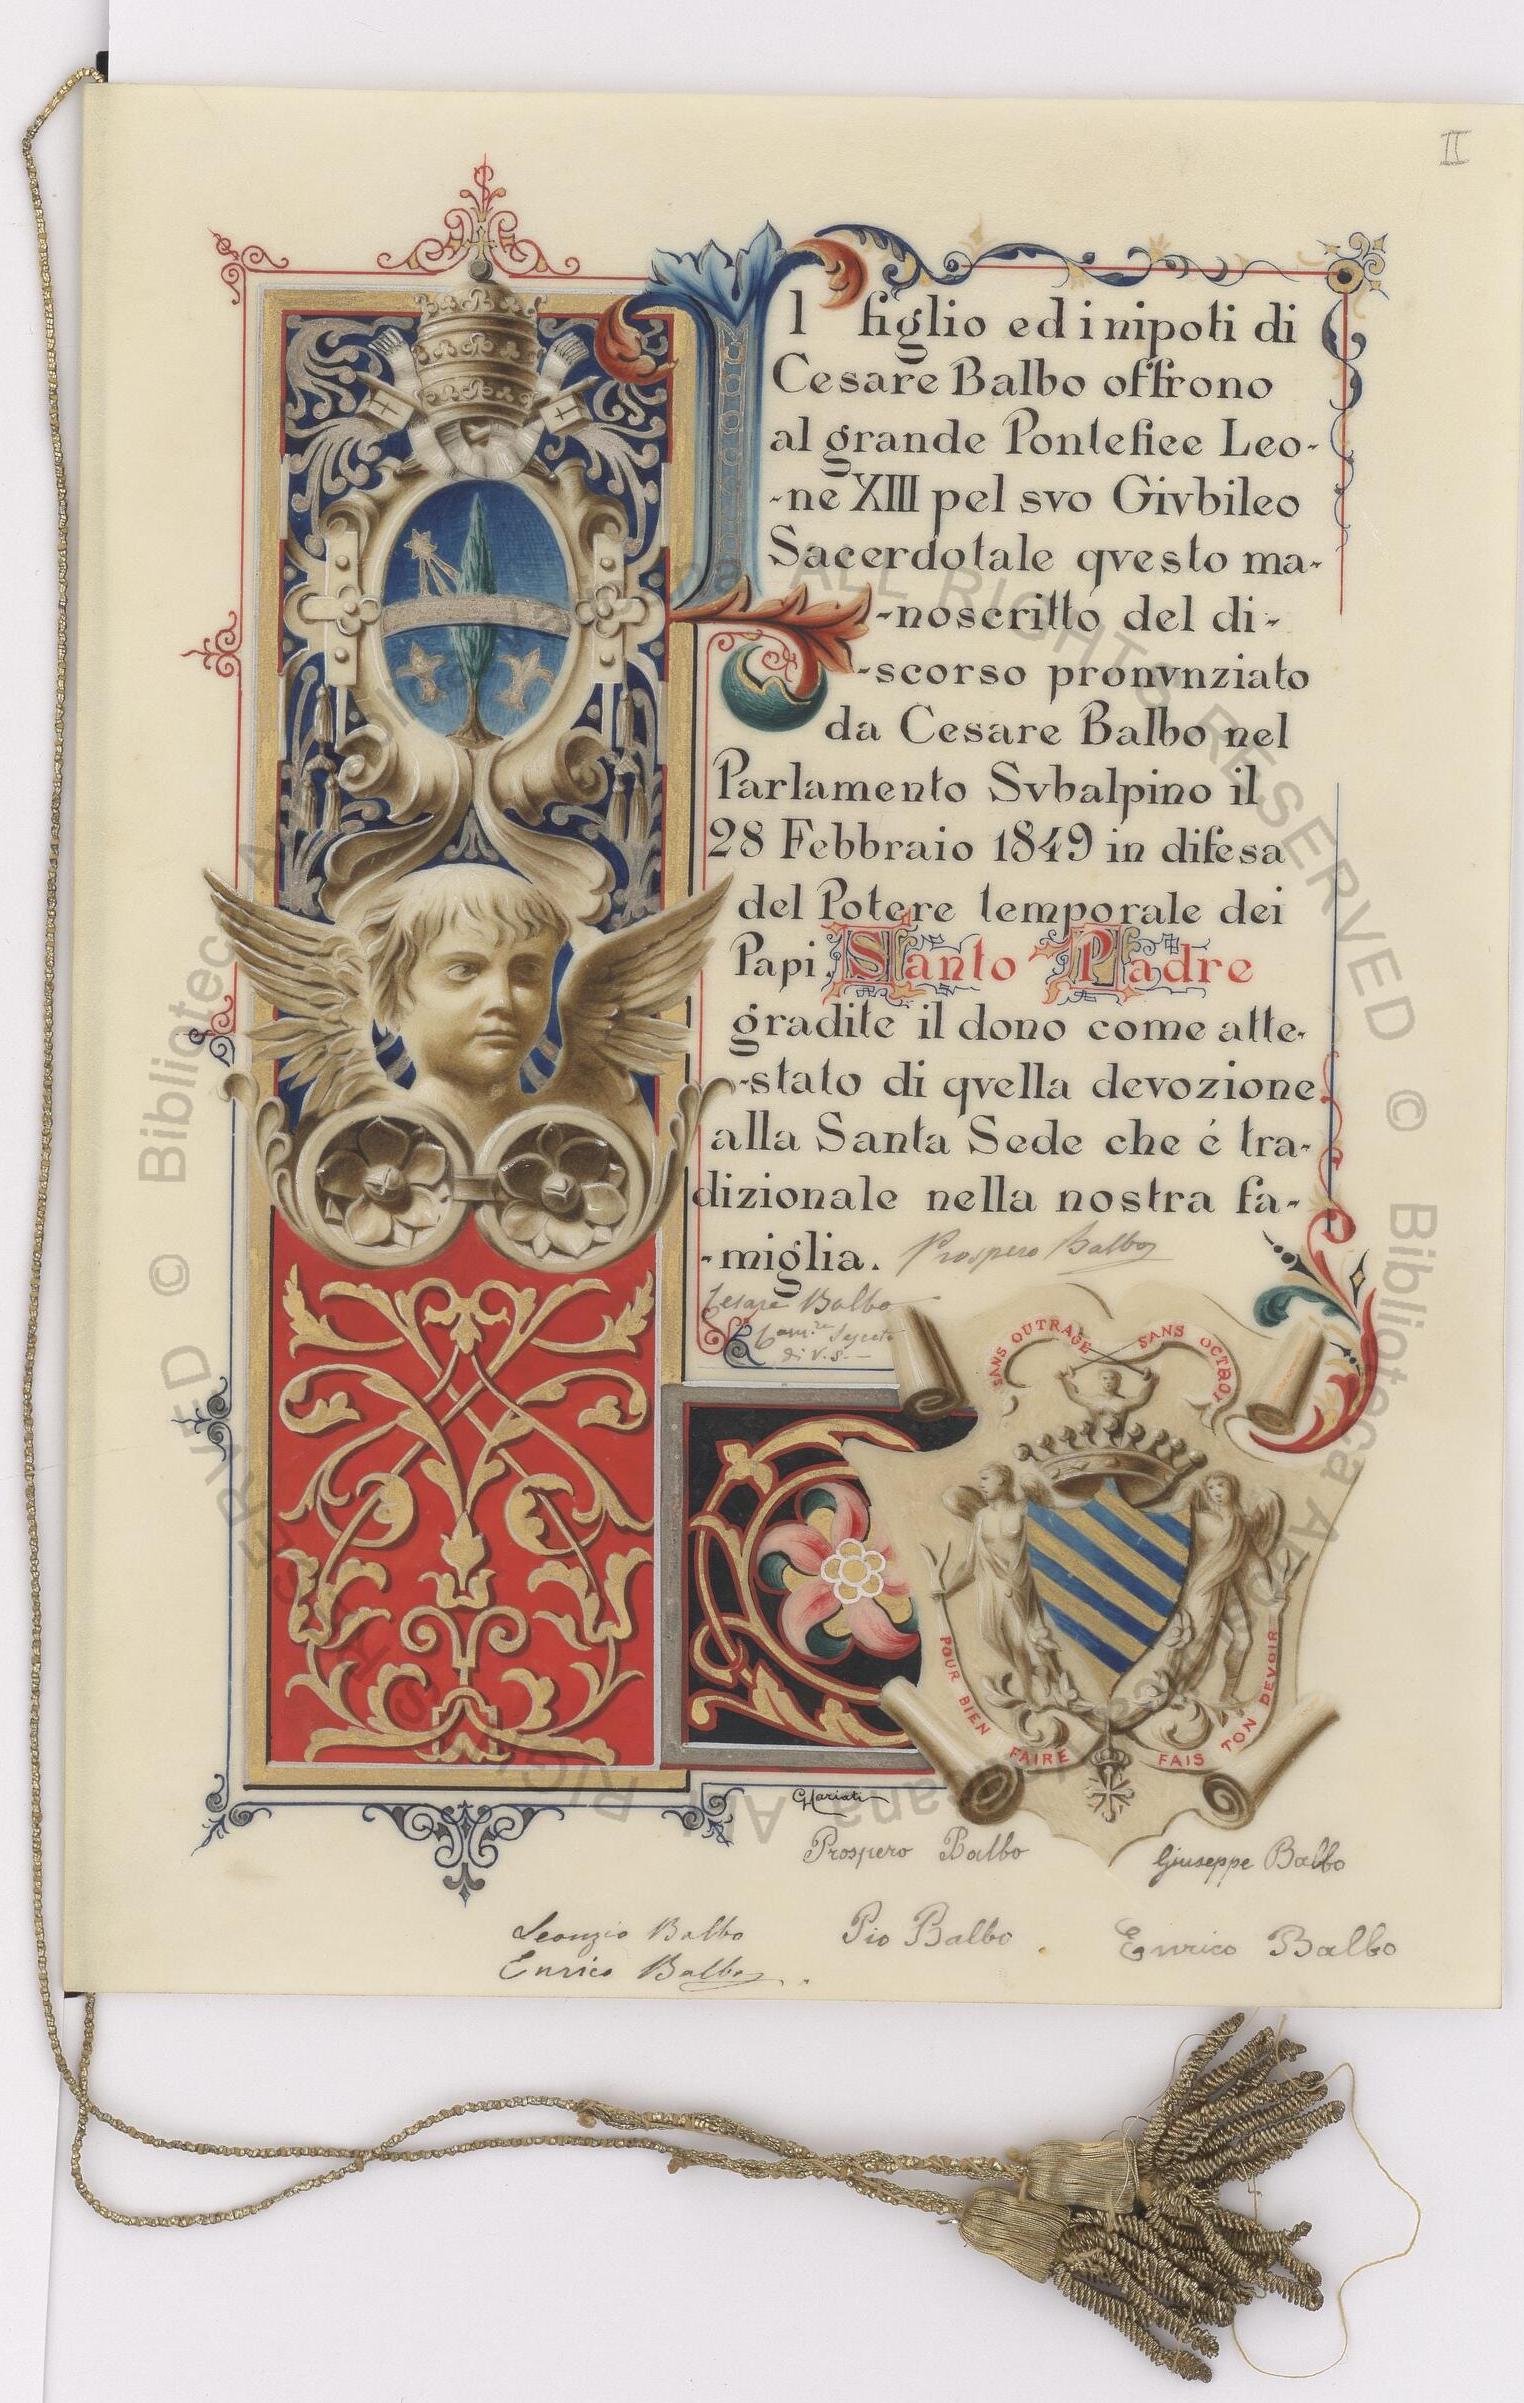 II
Il figlio ed i nipoti di
Cesare Balbo offrono
al grande Pontefice Leo-
-ne XIII pel svo Givbileo
Sacerdotale qvesto ma-
-noscritto del di-
-scorso pronvnziato
da Cesare Balbo nel
Parlamento Svbalpino il
28 Febbraio 1849 in difesa
del Potere temporale dei
Papi. Santo Padre
gradite il dono come atte-
-stato di qvella devozione
alla Santa Sede che é tra-
dizionale nella nostra fa-
-miglia. Prospero Balbo
Cesare Balbo
Cam.re Segreto
di V. S.
SANS OUTRAGE SANS OCTROI
POUR BIEN FAIRE FAIS TON DEVOIR
Prospero Balbo Giuseppe Balbo
Leonzio Balbo Pio Balbo Enrico Balbo
Enrico Balbo
© Biblioteca Apostolica Vaticana ALL RIGHTS RESERVED
© Biblioteca Apostolica Vaticana ALL RIGHTS RESERVED